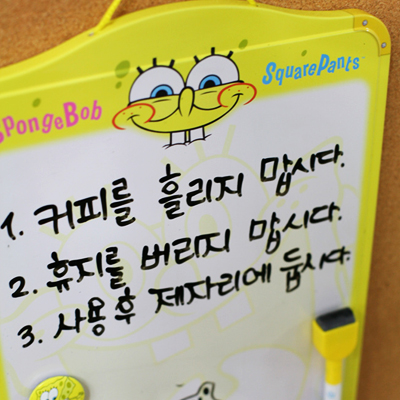 SpongeBob SquarePants
1. 커피를 흘리지 맙시다.
2. 휴지를 버리지 맙시다.
3. 사용후 제자리에 둡시다.